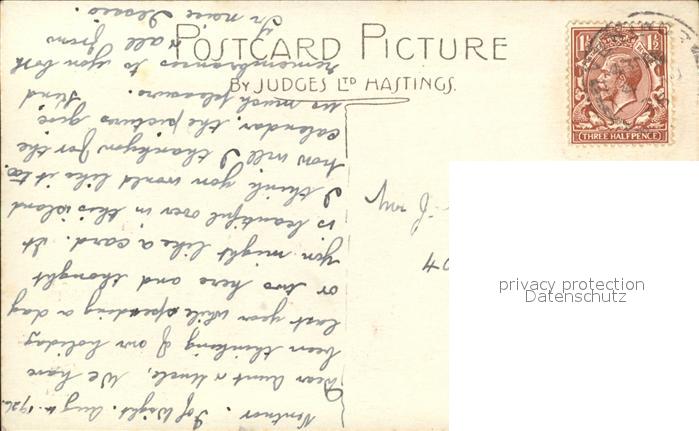 POSTCARD PICTURE
BY JUDGES LTD HASTINGS.
1½ 1½
THREE HALFPENCE
Mr J.
4
privacy protection
Datenschutz
Ventnor. I of Wight. Aug 4. 1926.
Dear Aunt & Uncle, We have
been thinking of our holiday
last year while spending a day
or two here and thought
you might like a card. It
is beautiful over in this island
I think you would like it too.
now will I thankyou for the
calendar, the pictures give
us much pleasure. Kind
remembrances to you both
& all from
Yr niece